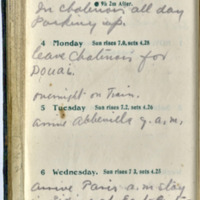 9h 2m After.
In Chalenois all day
Packing up.
4 Monday Sun rises 7.0, sets 4.28
leave Chatenois for
DOUAI.
overnight on Train.
5 Tuesday Sun rises 7.2, sets 4.26
arrive Abbeville 7. a.m.
6 Wednesday. Sun rises 7 3, sets 4.25
arrive Paris a.m stay